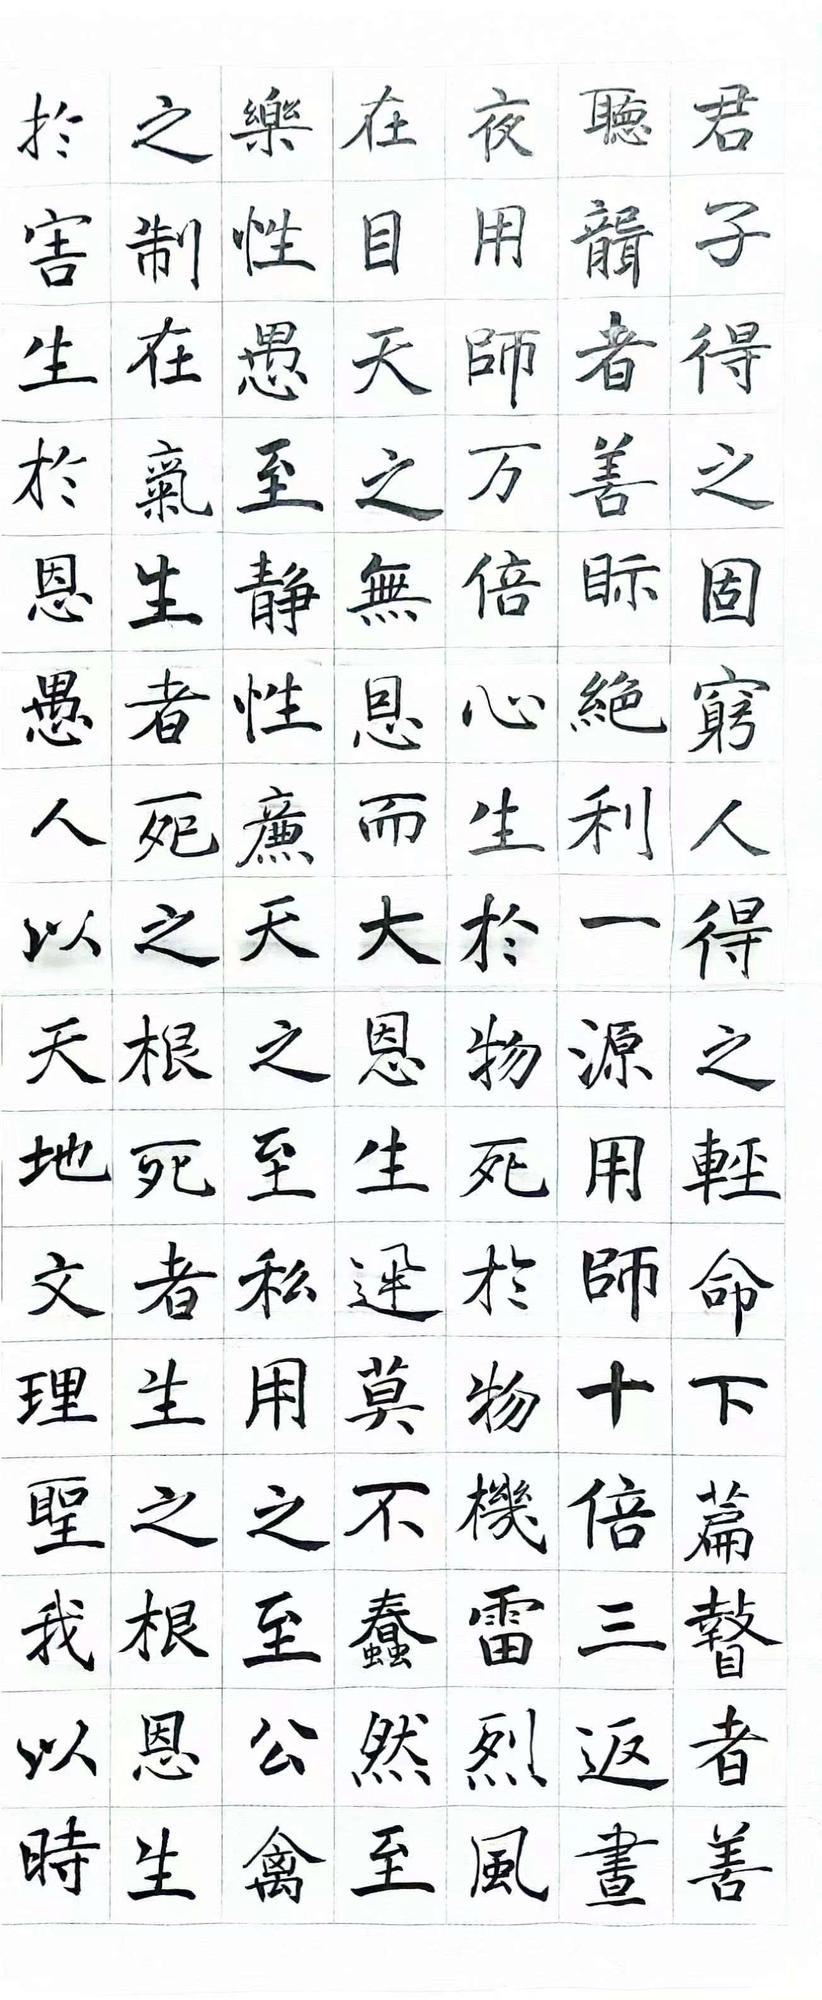 君子得之固窮人得之輕命下篇瞽者善
聽聾者善眎絶利一源用師十倍三返晝
夜用師万倍心生於物死於物機雷烈風
在目天之無恩而大恩生迅莫不蠢然至
樂性愚至静性廉天之至私用之至公禽
之制在氣生者死之根死者生之根恩生
於害生於恩愚人以天地文理聖我以時